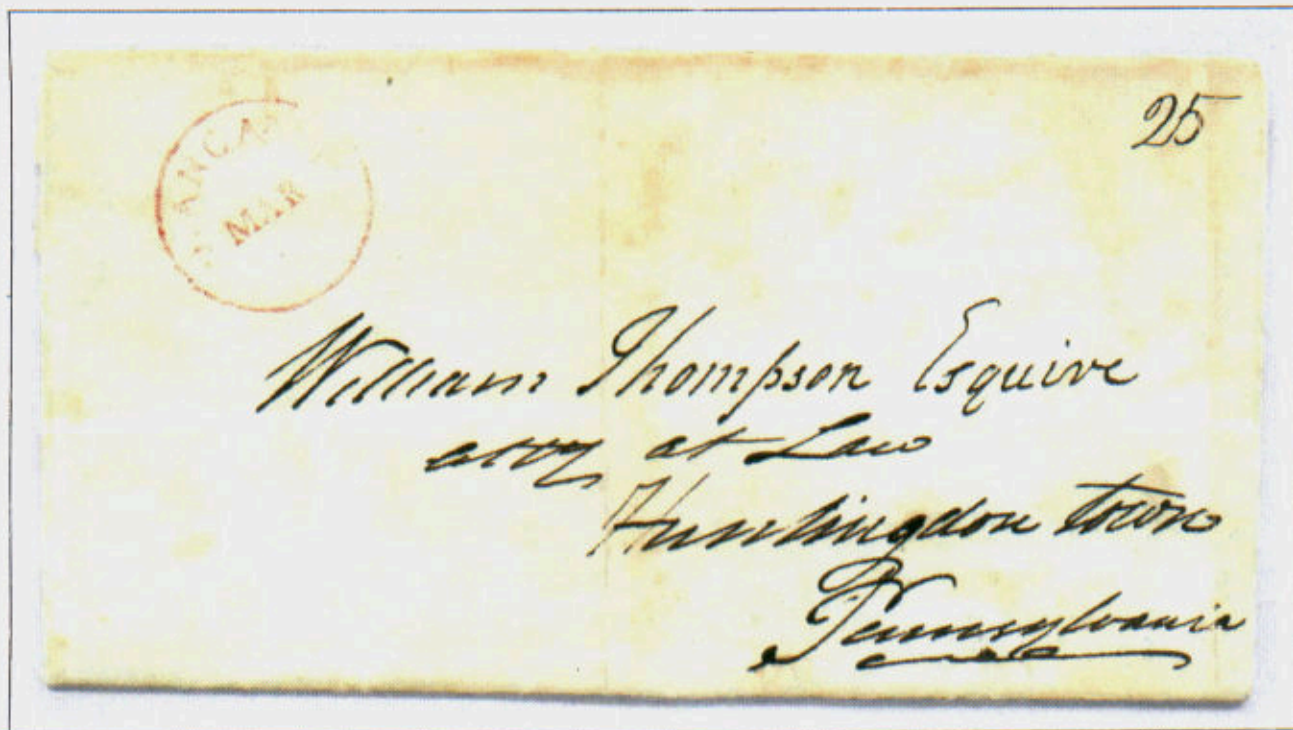 25
MAR
William Thompson Esquire
atty at Law
Huntingdon town
Pennsylvania